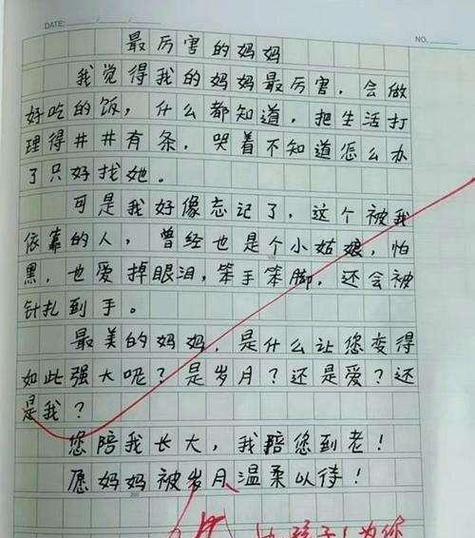 DATE: / /
NO.
最厉害的妈妈
我觉得我的妈妈最厉害，会做
好吃的饭，什么都知道，把生活打
理得井井有条，哭着不知道怎么办
了只好找她。
可是我好像忘记了，这个被我
依靠的人，曾经也是个小姑娘，怕
黑，也爱掉眼泪，笨手笨脚，还会被
针扎到手。
最美的妈妈，是什么让您变得
如此强大呢？是岁月？还是爱？还
是我？
您陪我长大，我陪您到老！
愿妈妈被岁月温柔以待！
孩子！为你